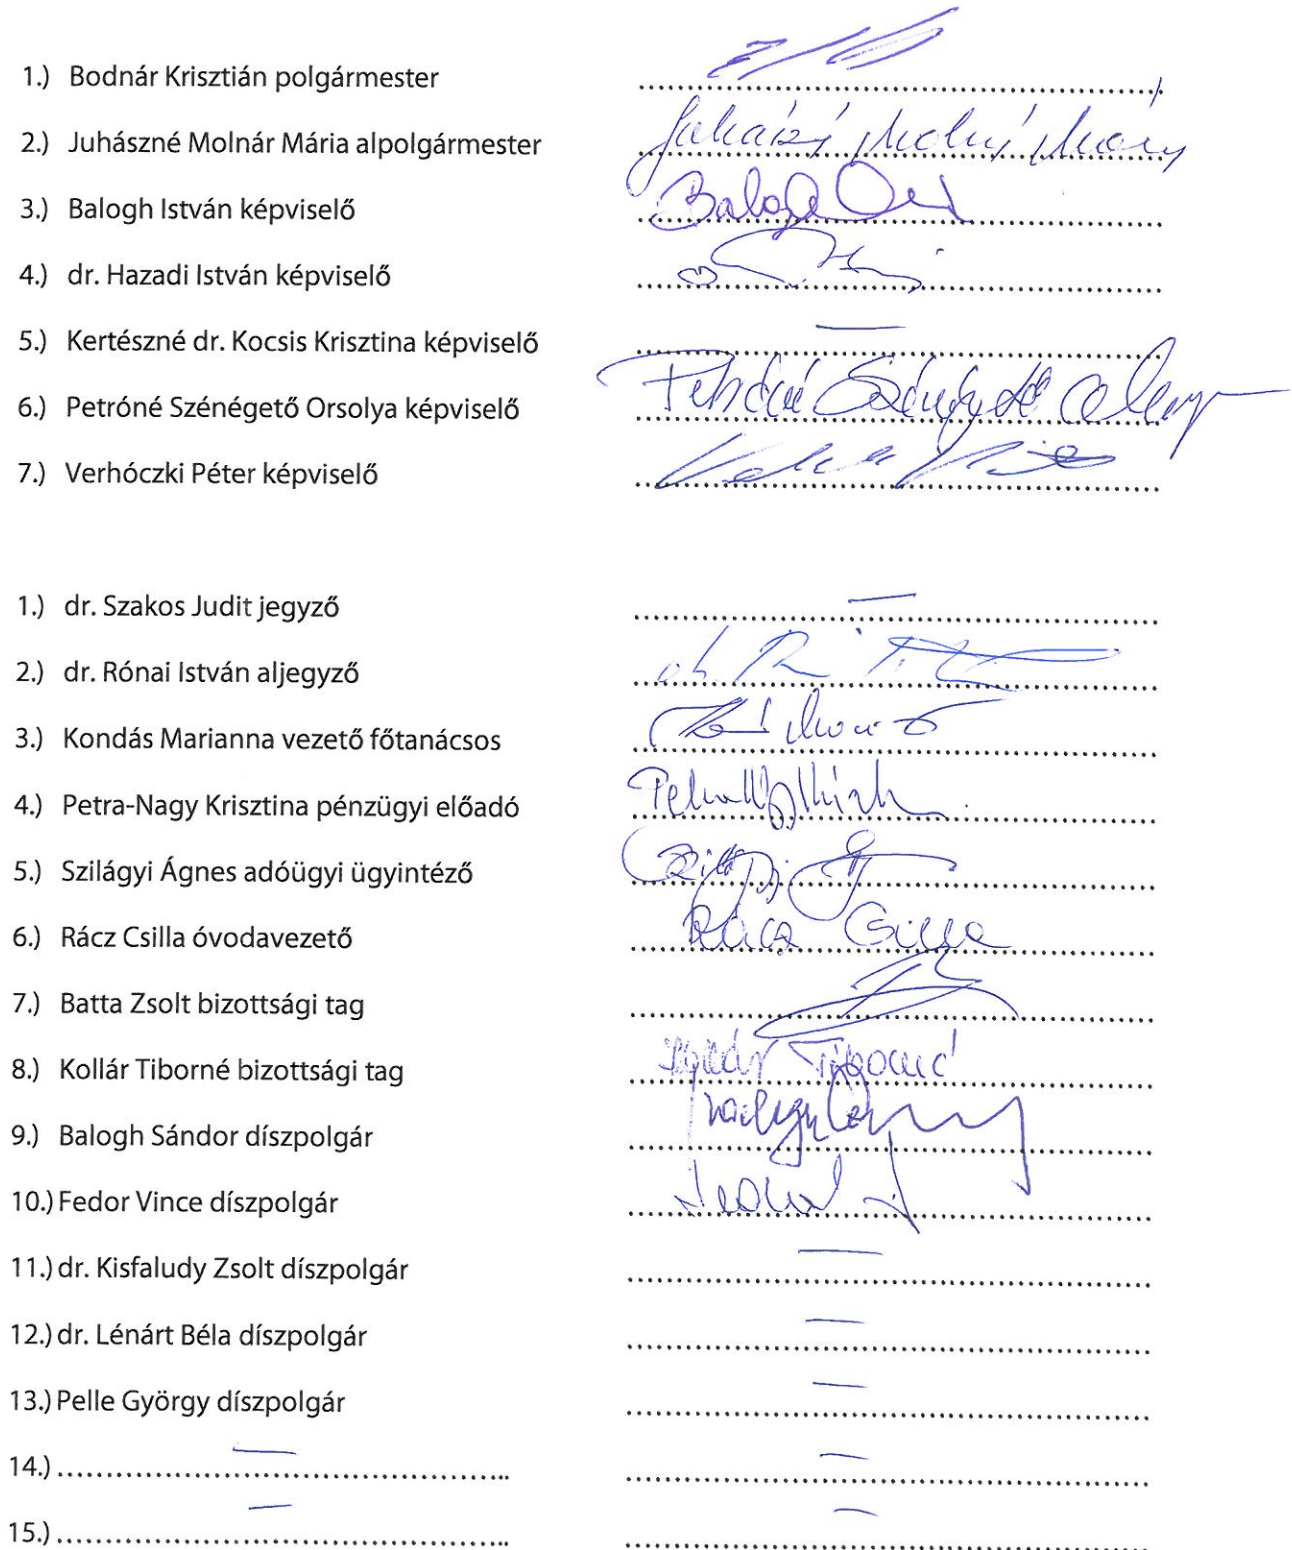 1.) Bodnár Krisztián polgármester ................
2.) Juhászné Molnár Mária alpolgármester ................
3.) Balogh István képviselő ................ Balogh
4.) dr. Hazadi István képviselő ................
5.) Kertészné dr. Kocsis Krisztina képviselő ................ —
6.) Petróné Szénégető Orsolya képviselő ................
7.) Verhóczki Péter képviselő ................
1.) dr. Szakos Judit jegyző ................ —
2.) dr. Rónai István aljegyző ................
3.) Kondás Marianna vezető főtanácsos ................
4.) Petra-Nagy Krisztina pénzügyi előadó ................
5.) Szilágyi Ágnes adóügyi ügyintéző ................
6.) Rácz Csilla óvodavezető ................ Rácz Csilla
7.) Batta Zsolt bizottsági tag ................
8.) Kollár Tiborné bizottsági tag ................ Kollár Tiborné
9.) Balogh Sándor díszpolgár ................
10.) Fedor Vince díszpolgár ................
11.) dr. Kisfaludy Zsolt díszpolgár ................ —
12.) dr. Lénárt Béla díszpolgár ................ —
13.) Pelle György díszpolgár ................ —
14.) ................ — ................ —
15.) ................ — ................ —